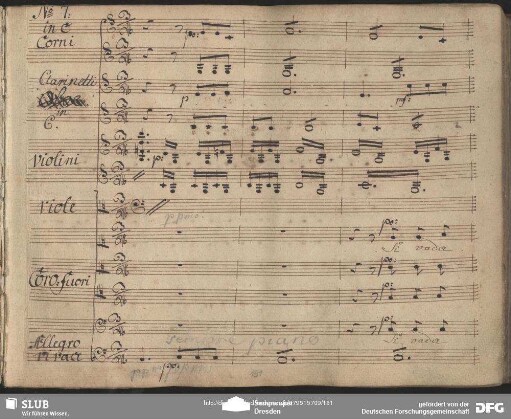 No 7.
in C
Corni
Clarinetti
in
C.
Violini
Viole
Coro. fuori
Si vada
Si vada
sempre piano
Allegro
vivace
SLUB
Wir führen Wissen.
Dresden
gefördert von der
Deutschen Forschungsgemeinschaft
DFG